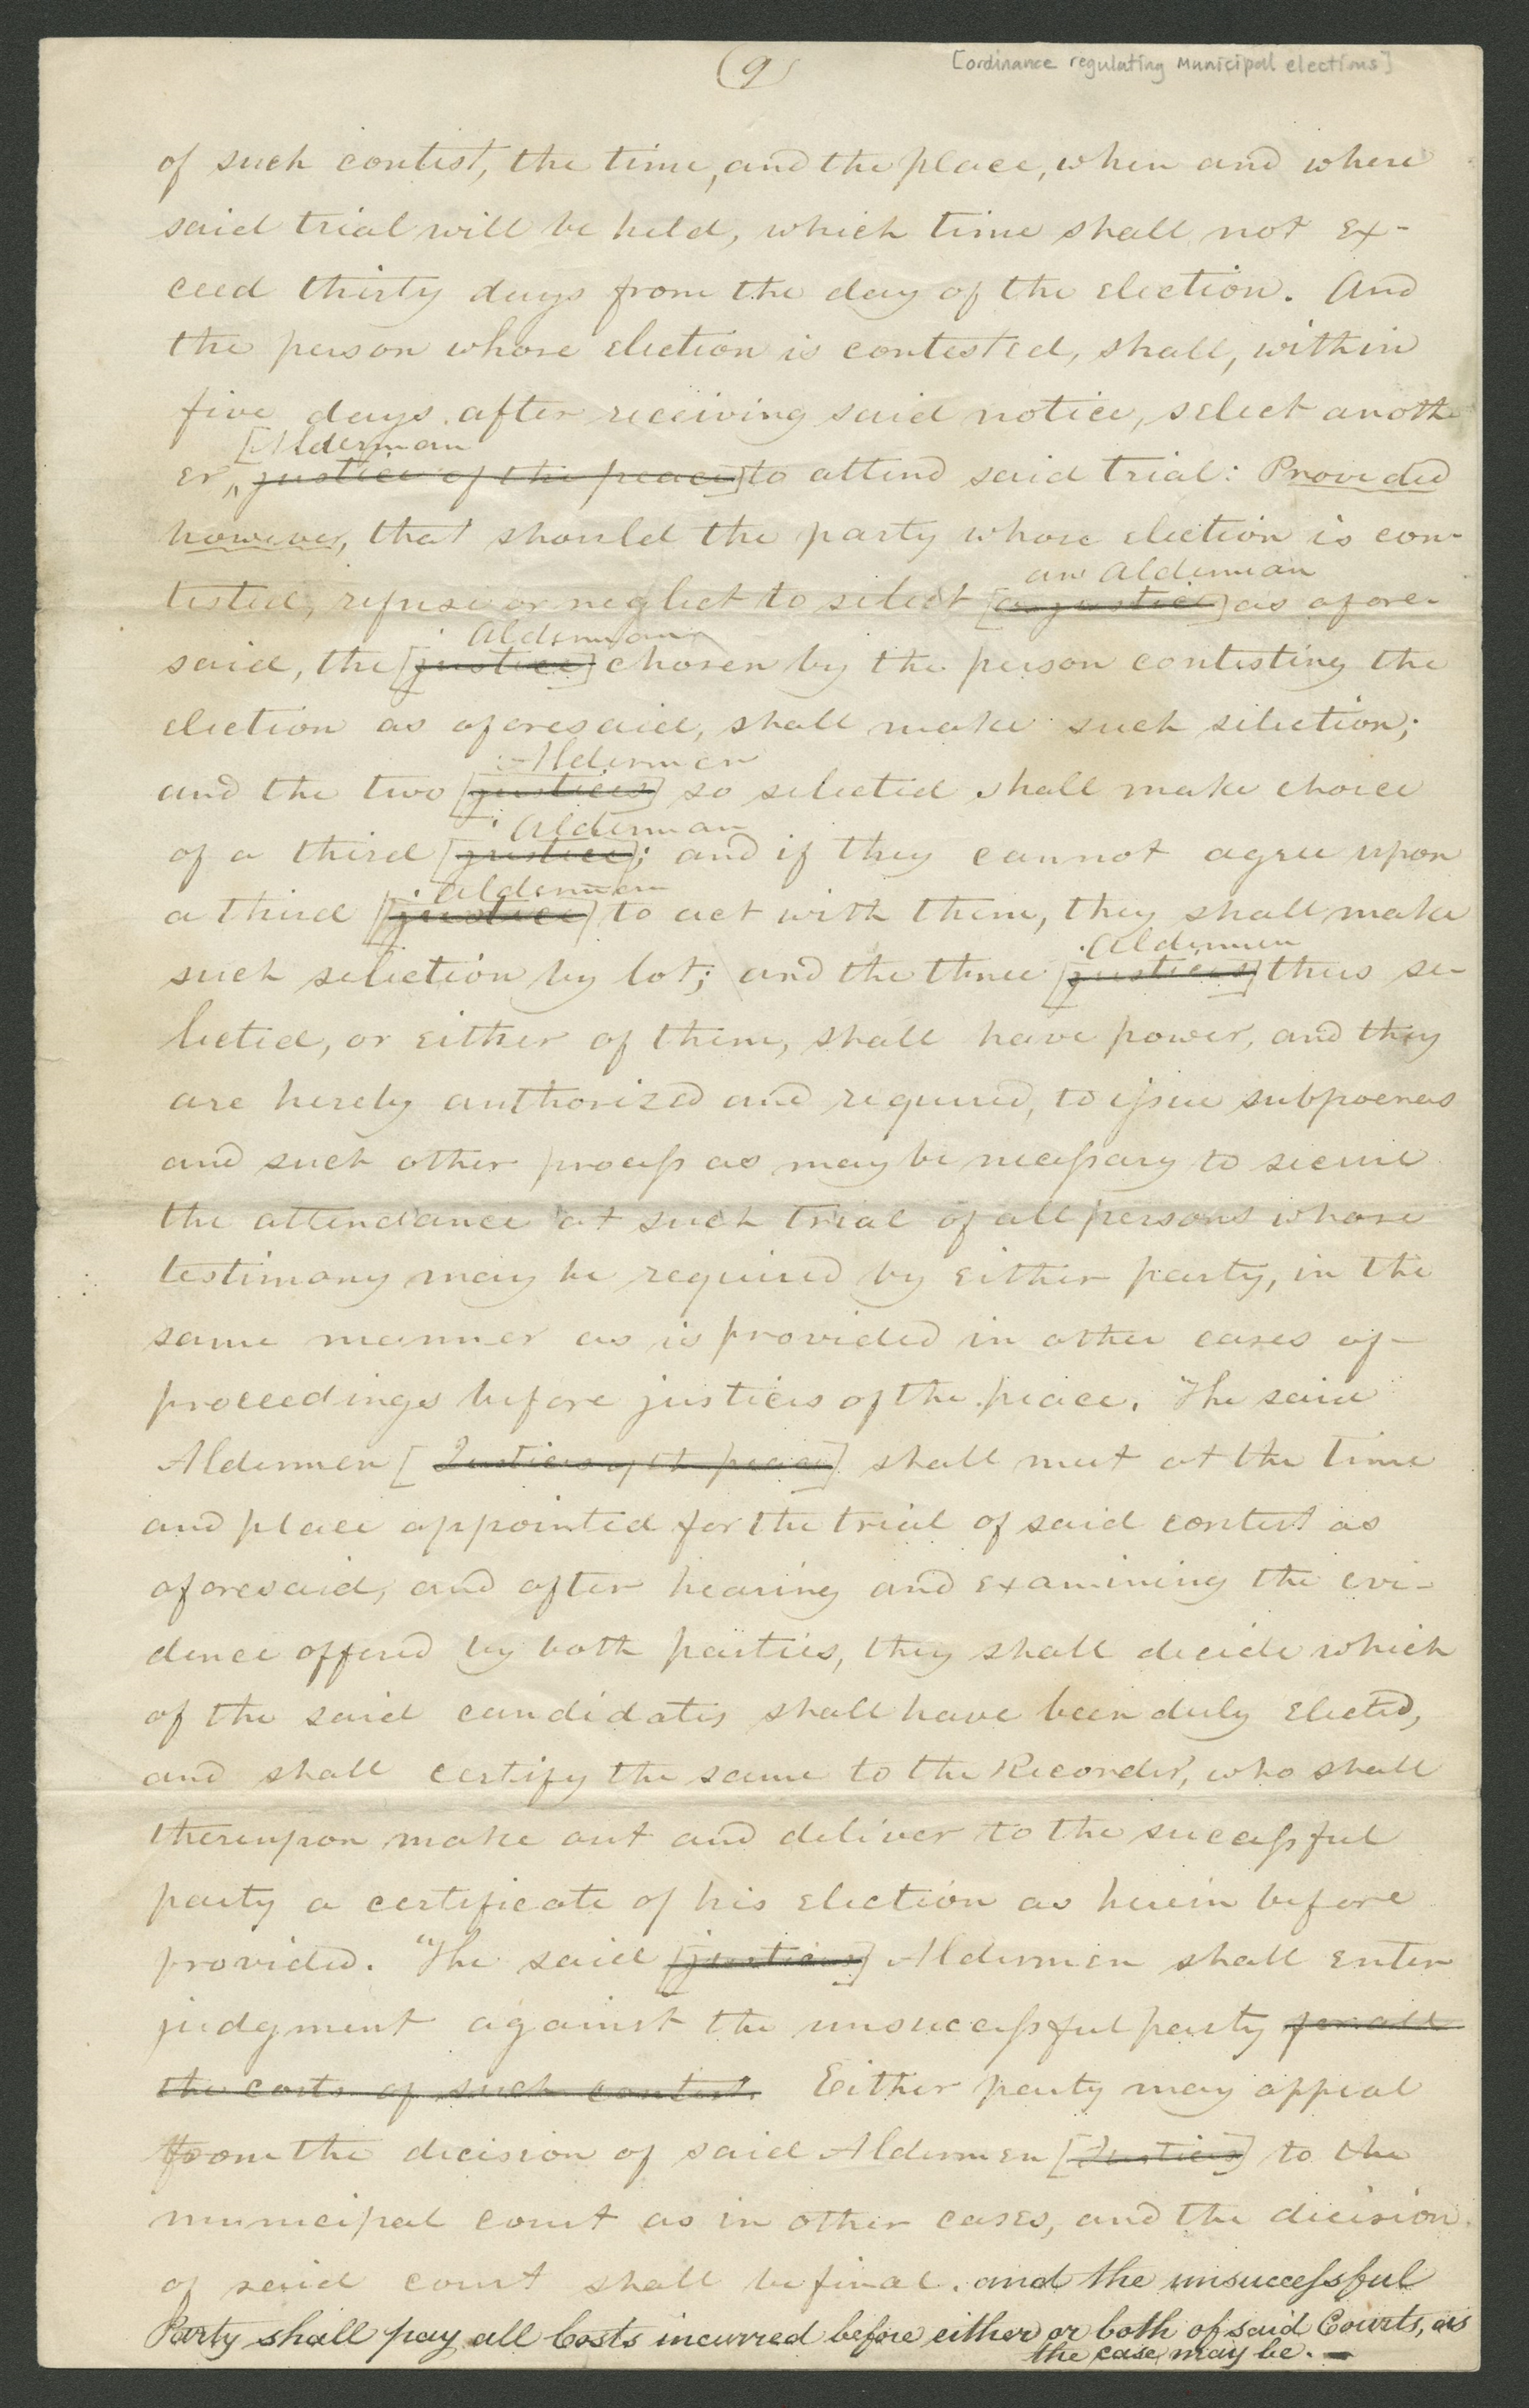 (9)
[ordinance regulating municipal elections]
of such contest, the time, and the place, when and where
said trial will be held, which time shall not ex-
ceed thirty days from the day of the election. And
the person whose election is contested, shall, within
five days after receiving said notice, select anoth-
[Alderman
er, justice of the peace] to attend said trial: Provided
however, that should the party whose election is con-
an Alderman
tested, refuse or neglect to select [a justice] as afore-
Alderman
said, the [justice] chosen by the person contesting the
election as aforesaid, shall make such selection;
Aldermen
and the two [justices] so selected shall make choice
Alderman
of a third [justice]; and if they cannot agree upon
Alderman
a third [justice] to act with them, they shall make
Aldermen
such selection by lot; and the three [justices] thus se-
lected, or either of them, shall have power, and they
are hereby authorized and required, to issue subpoenas
and such other process as may be necessary to secure
the attendance at such trial of all persons whose
testimony may be required by either party, in the
same manner as is provided in other cases of
proceedings before justices of the peace. The said
Aldermen [Justices of the peace] shall meet at the time
and place appointed for the trial of said contest as
aforesaid, and after hearing and examining the evi-
dence offered by both parties, they shall decide which
of the said candidates shall have been duly elected,
and shall certify the same to the Recorder, who shall
thereupon make out and deliver to the successful
party a certificate of his election as herein before
provided. The said [justices] Aldermen shall enter
judgment against the unsuccessful party for all
the costs of such contest. Either party may appeal
from the decision of said Aldermen [Justices] to the
municipal court as in other cases, and the decision
of said court shall be final. and the unsuccessful
Party shall pay all Costs incurred before either or both of said Courts, as
the case may be. —